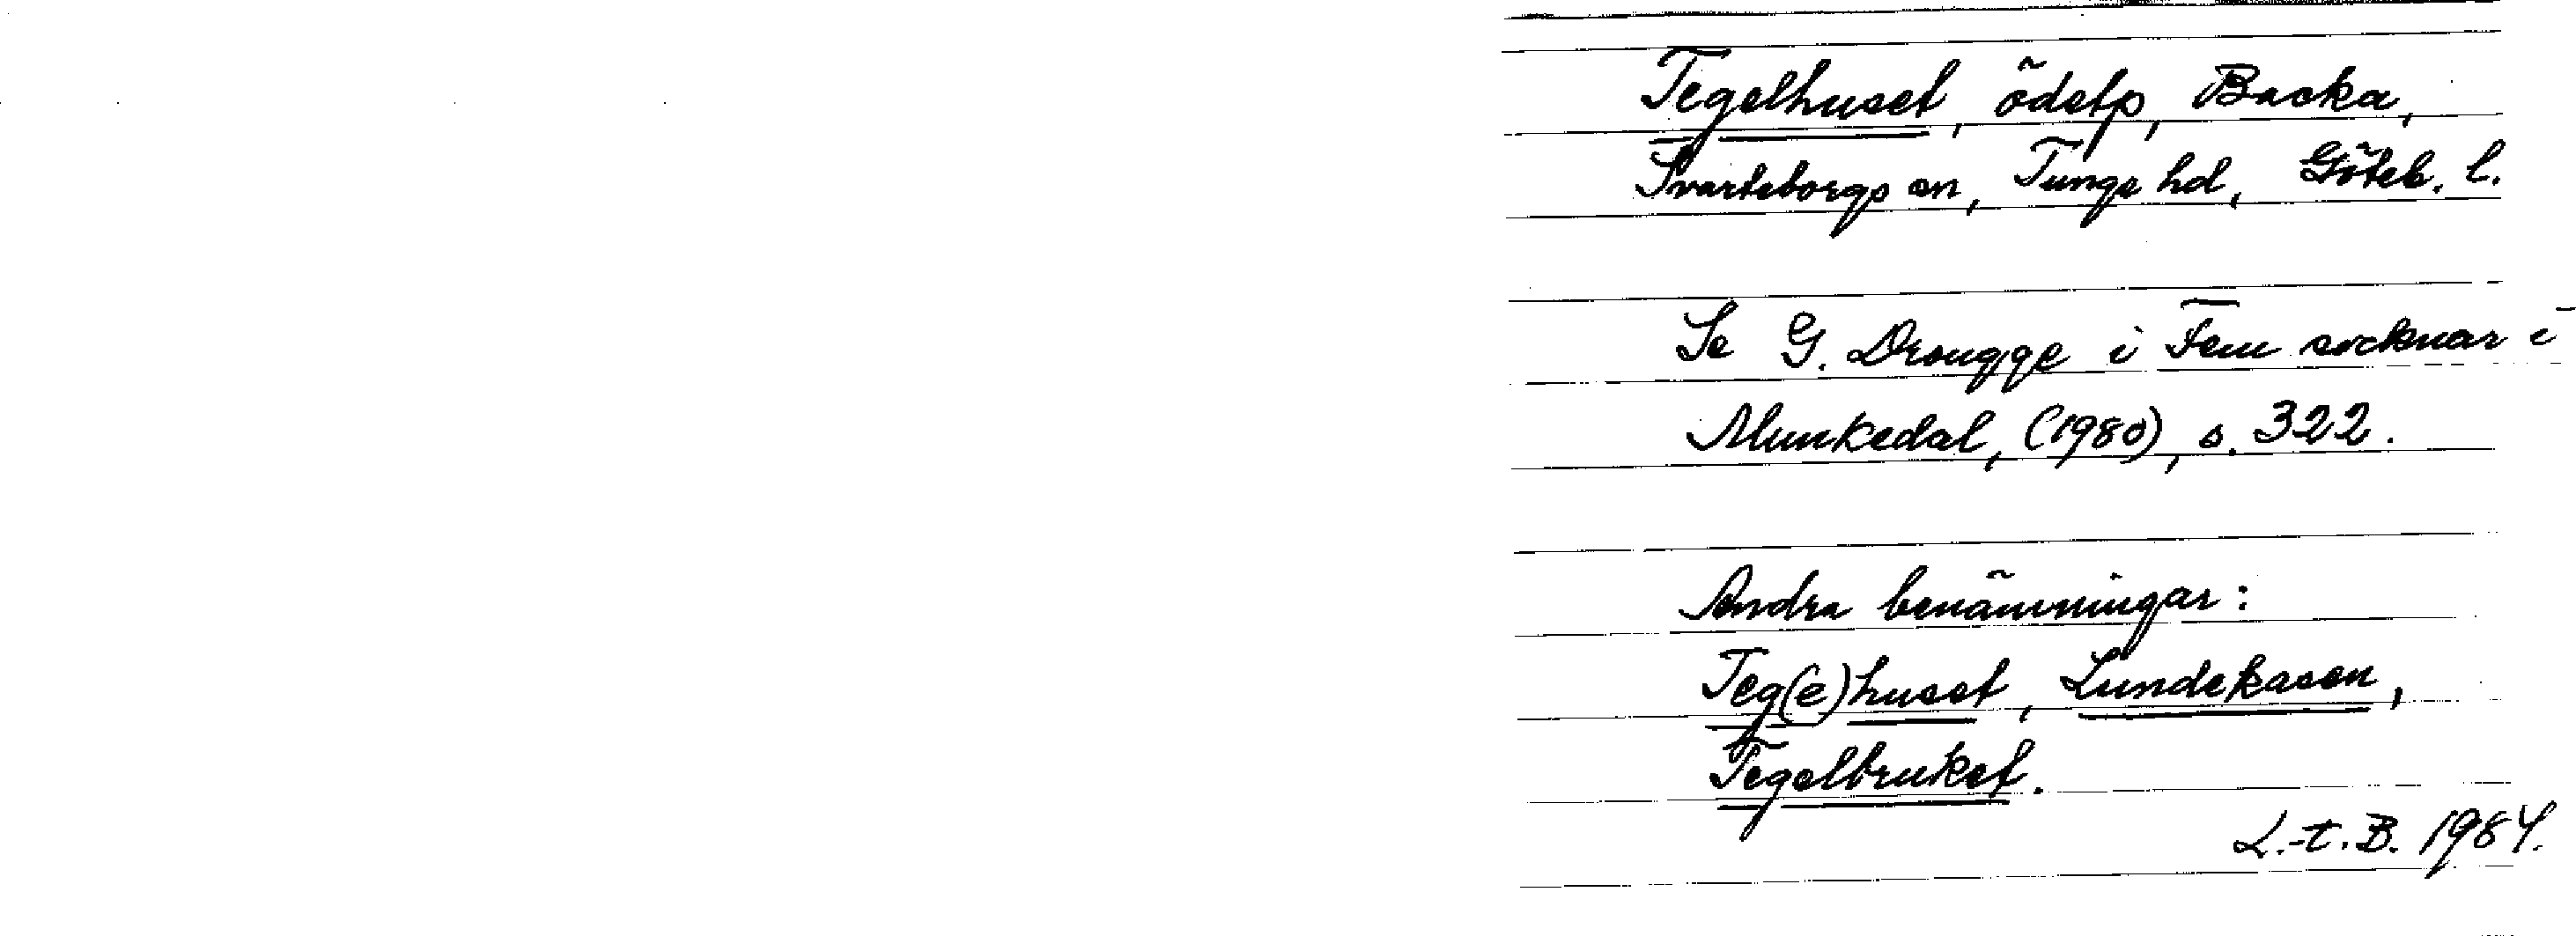 Tegelhuset, ödetp, Backa,
Svarteborgs sn, Tunge hd, Göteb. l.
Se G. Drougge i Fem socknar i
Munkedal, (1980), s. 322.
Andra benämningar:
Teg(e)huset, Lundekasen,
Tegelbruket.
L.-t. B. 1984.